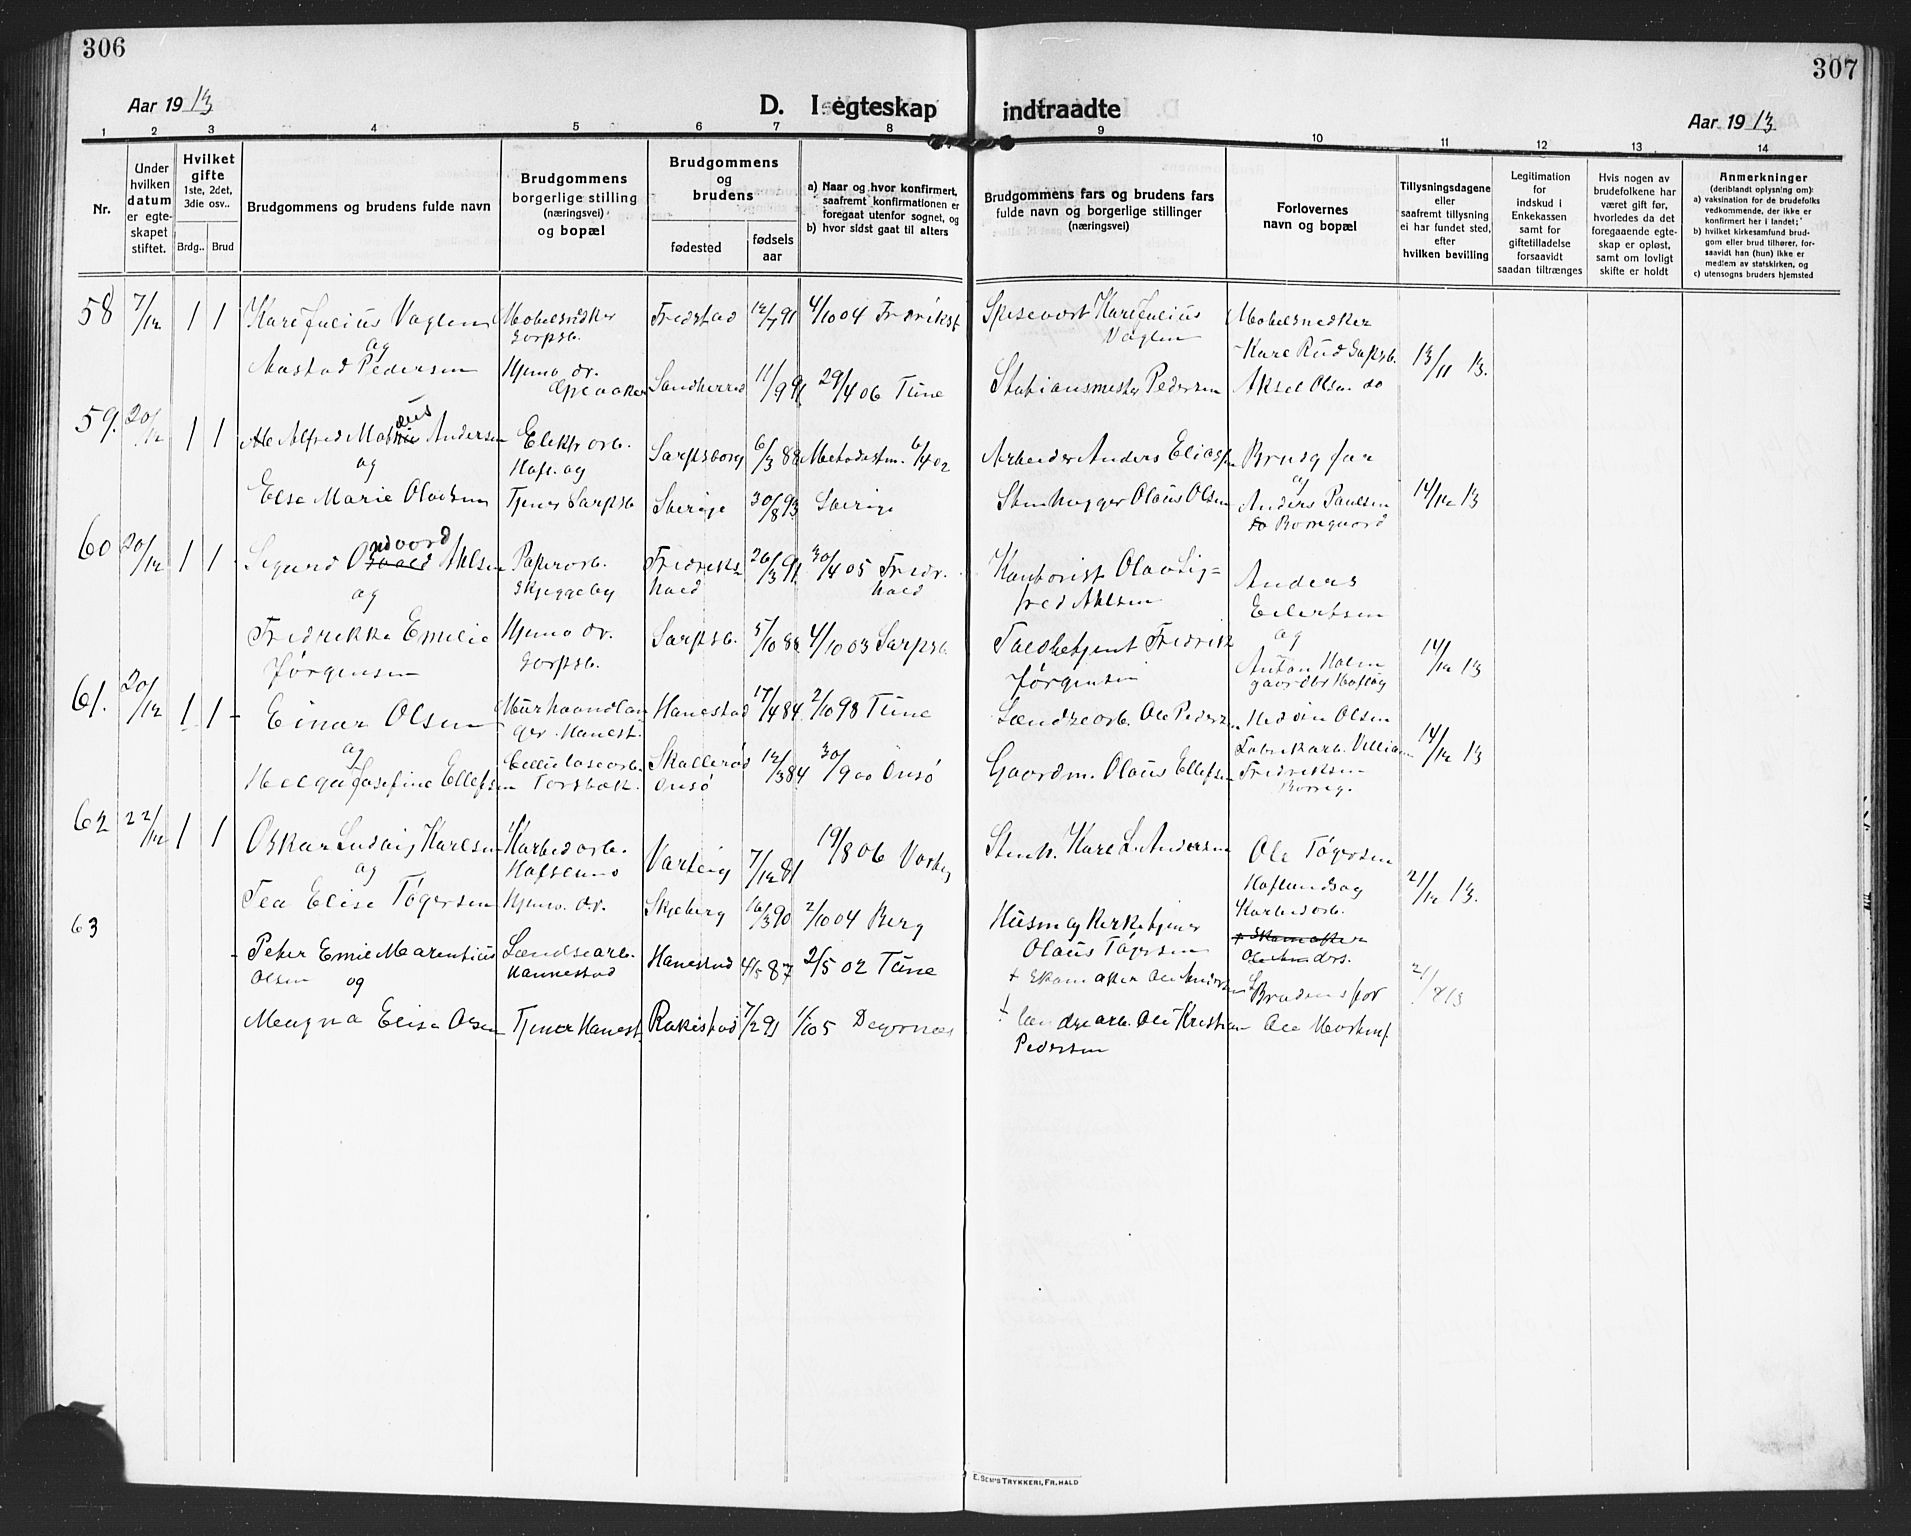 306
307
Aar 19 13
D. I egteskap indtraadte
Aar 19 13
1 2 3 4 5 6 7 8 9 10 11 12 13 14
Nr.
Under hvilken datum er egte-skapet stiftet.
Hvilket gifte 1ste, 2det, 3die osv..
Brdg.. Brud
Brudgommens og brudens fulde navn
Brudgommens borgerlige stilling (næringsvei) og bopæl
Brudgommens og brudens
fødested
fødsels aar
a) Naar og hvor konfirmert, saafremt konfirmationen er foregaat utenfor sognet, og
b) hvor sidst gaat til alters
Brudgommens fars og brudens fars fulde navn og borgerlige stillinger (næringsvei)
Forlovernes navn og bopæl
Tillysningsdagene eller saafremt tillysning ei har fundet sted, efter hvilken bevilling
Legitimation for indskud i Enkekassen samt for giftetilladelse forsaavidt saadan tiltrænges
Hvis nogen av brudefolkene har været gift før, hvorledes da det foregaaende egte-skap er opløst, samt om lovligt skifte er holdt
Anmerkninger (deriblandt oplysning om):
a) vaksination for de brudefolks vedkommende, der ikke er konfirmert her i landet;
b) hvilket kirkesamfund brud-gom eller brud tilhører, for-saavidt han (hun) ikke er medlem av statskirken, og
c) utensogns bruders hjemsted
58 7/12 1 1 Karl Julius Vaglen Møbelsnedker Sarpsb. Fredstad 12/7 91 4/10 04 Fredrikst Spisevært Karl Julius Vaglen Møbelsnedker Karl Rud Sarpsb.
og
Aastad Pedersen Hjemmev. dr. Greaaker Sandherred 11/9 91 29/4 06 Tune Stationsmester Pedersen Aksel Olsen do 13/11 13.
59. 20/12 1 1 Alfred Andersen Elektr arb. Hafs. og Sarpsborg 6/3 88 Metodistm. 6/4 02 Arbeider Anders Eliassen Brudg far
og
Else Marie Olavsen Tjener Sarpsb. Sverige 30/8 93 Sverige Stenhugger Olaus Olsen og Anders Paulsen Borregaard 14/12 13
60 20/12 1 1 Sigurd Ahlsen Papirarb. Skjeggeby Fredriks-hald 26/3 91 30/4 05 Fredr. hald Kontorist Olav Sig-fred Ahlsen Anders Eilertsen
og
Fredrikke Emilie Jørgensen Hjemmev. dr. Sarpsb. Sarpsb. 5/10 88 4/10 03 Sarpsb. Toldbetjent Fredrik Jørgensen og Anton Holm 14/12 13
61. 20/12 1 1 - Einar Olsen Murhaandlan-ger Hanest. Hanestad 17/4 84 2/10 98 Tune Landsearb. Ole Pedersen Hedvin Olsen
og
Helga Josefine Ellefsen Cellulosearb. Torsbæk. Skallerød Onsø 12/3 84 30/9 00 Onsø Gaardm. Olaus Ellefsen Fabrikarb. Villiam Fredriksen Borreg. 14/12 13
62 22/12 1 1 Oskar Ludvig Karlsen Karbidarb. Hafslund Varteig 7/12 81 19/8 06 Varteig Stenh. Karl L. Andersen Ole Tøgersen Haflundsog
og
Tea Elise Tøgersen Hjemv. dr. Skjeberg 16/3 90 2/10 04 Berg Husm og Kirketjener Olaus Tøgersen Karbidarb. 21/12 13.
63
- Peter Emil Marentius Olsen Landsearb. Hannestad Hanestad 4/5 87 2/5 02 Tune + Skomaker Ole Andersen Brudens far
og
Magna Elise Olsen Tjener Hanest. Rakkestad 7/2 91 1/10 05 Degernes + landsearb. Ole Kristian Pedersen Ole 21/ 13
E. SEM'S TRYKKERI, FR.HALD